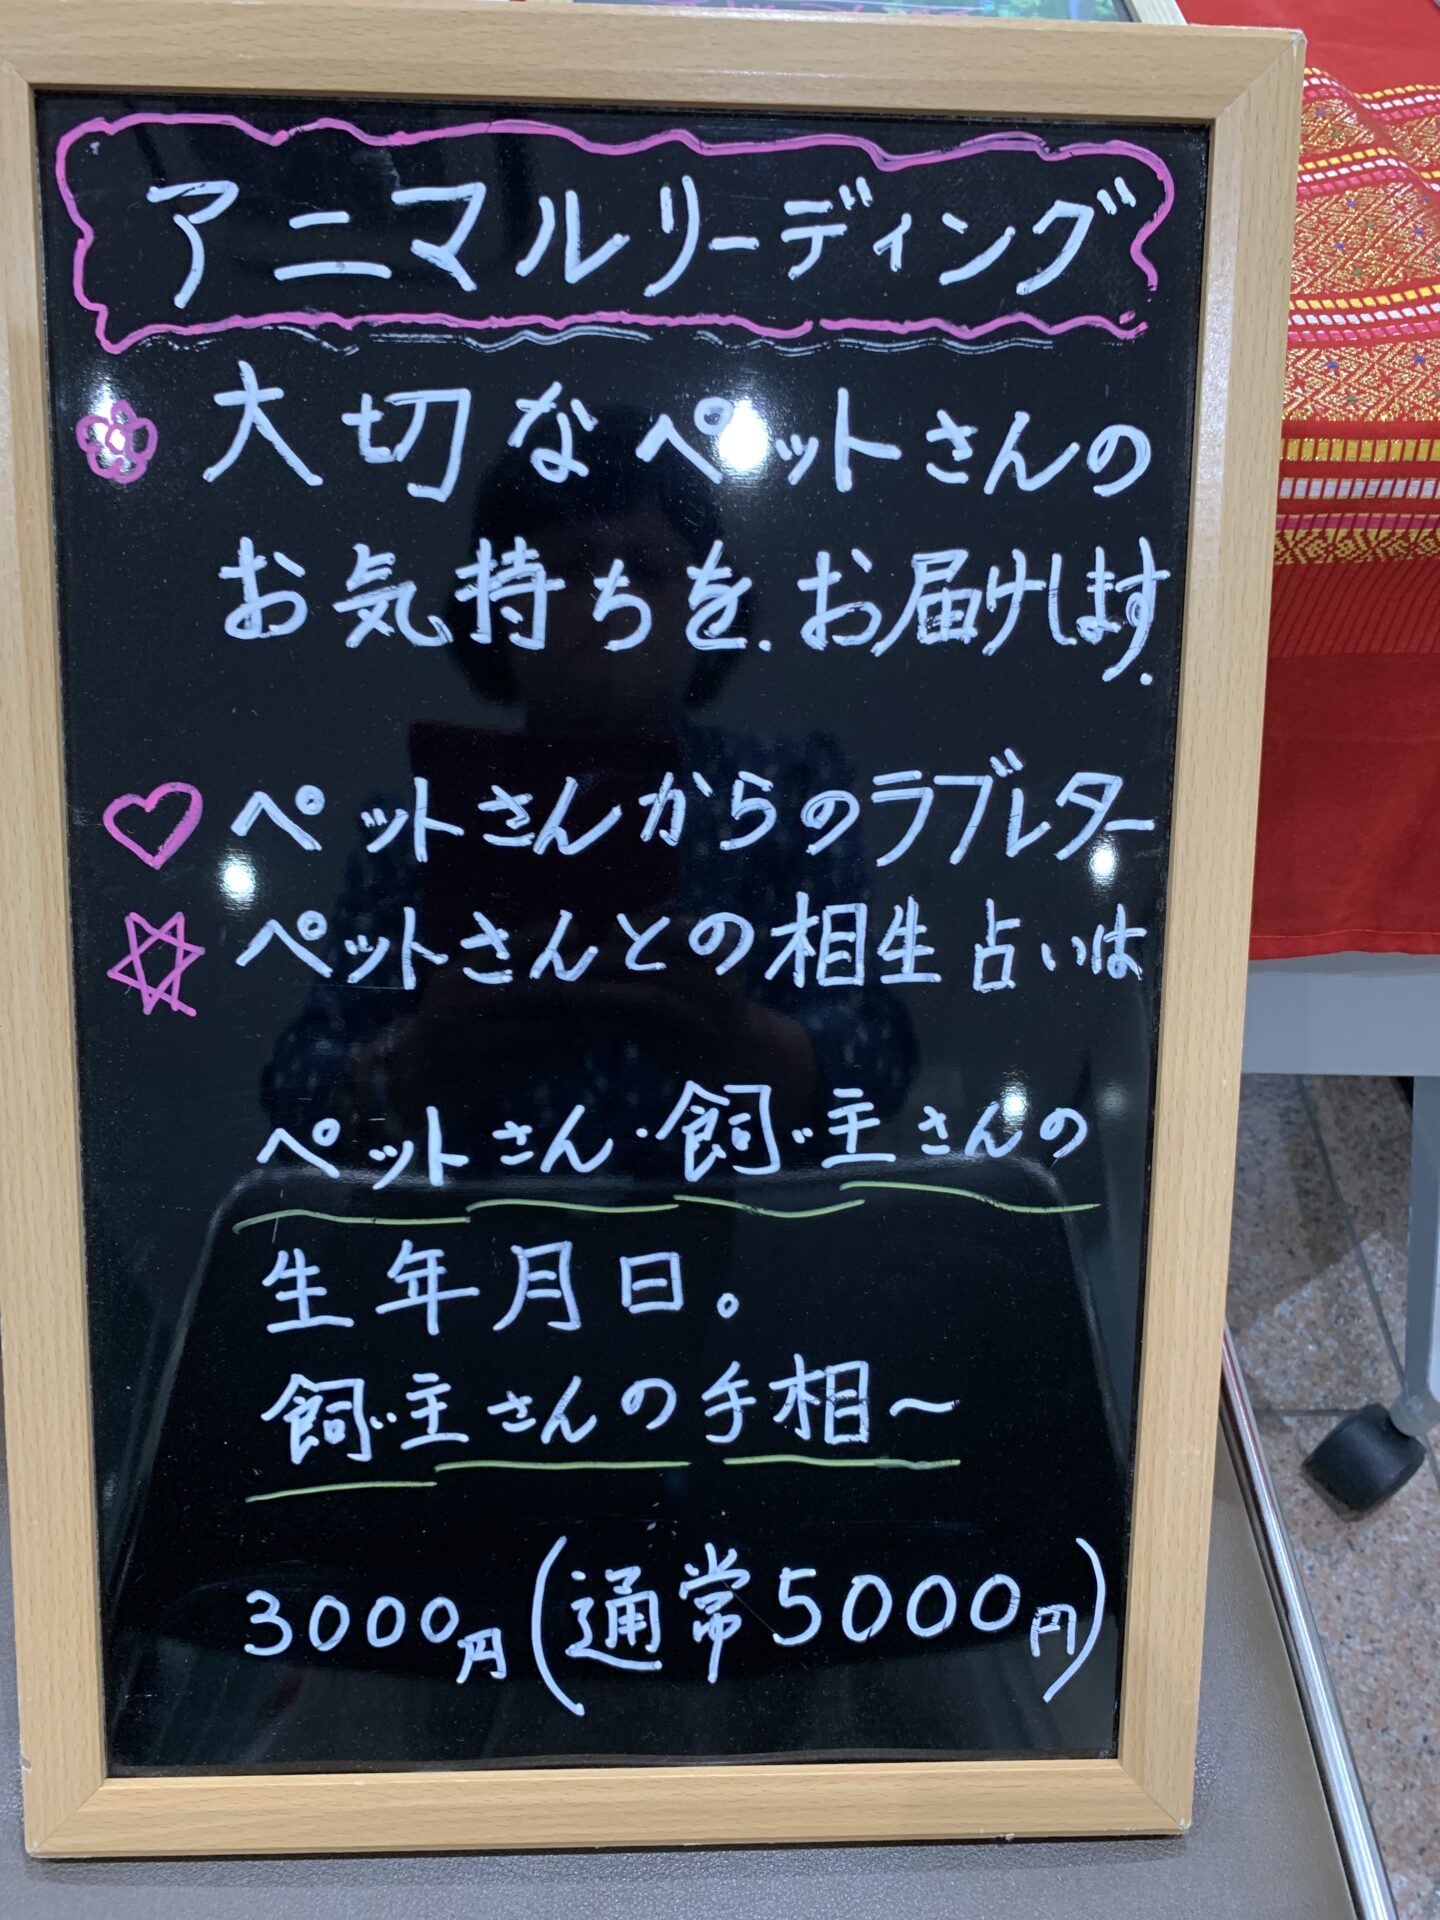 アニマルリーディング
大切なペットさんの
お気持ちを.お届けします.
ペットさんからのラブレター
ペットさんとの相生占いは
ペットさん・飼い主さんの
生年月日。
飼い主さんの手相〜
3000円(通常5000円)